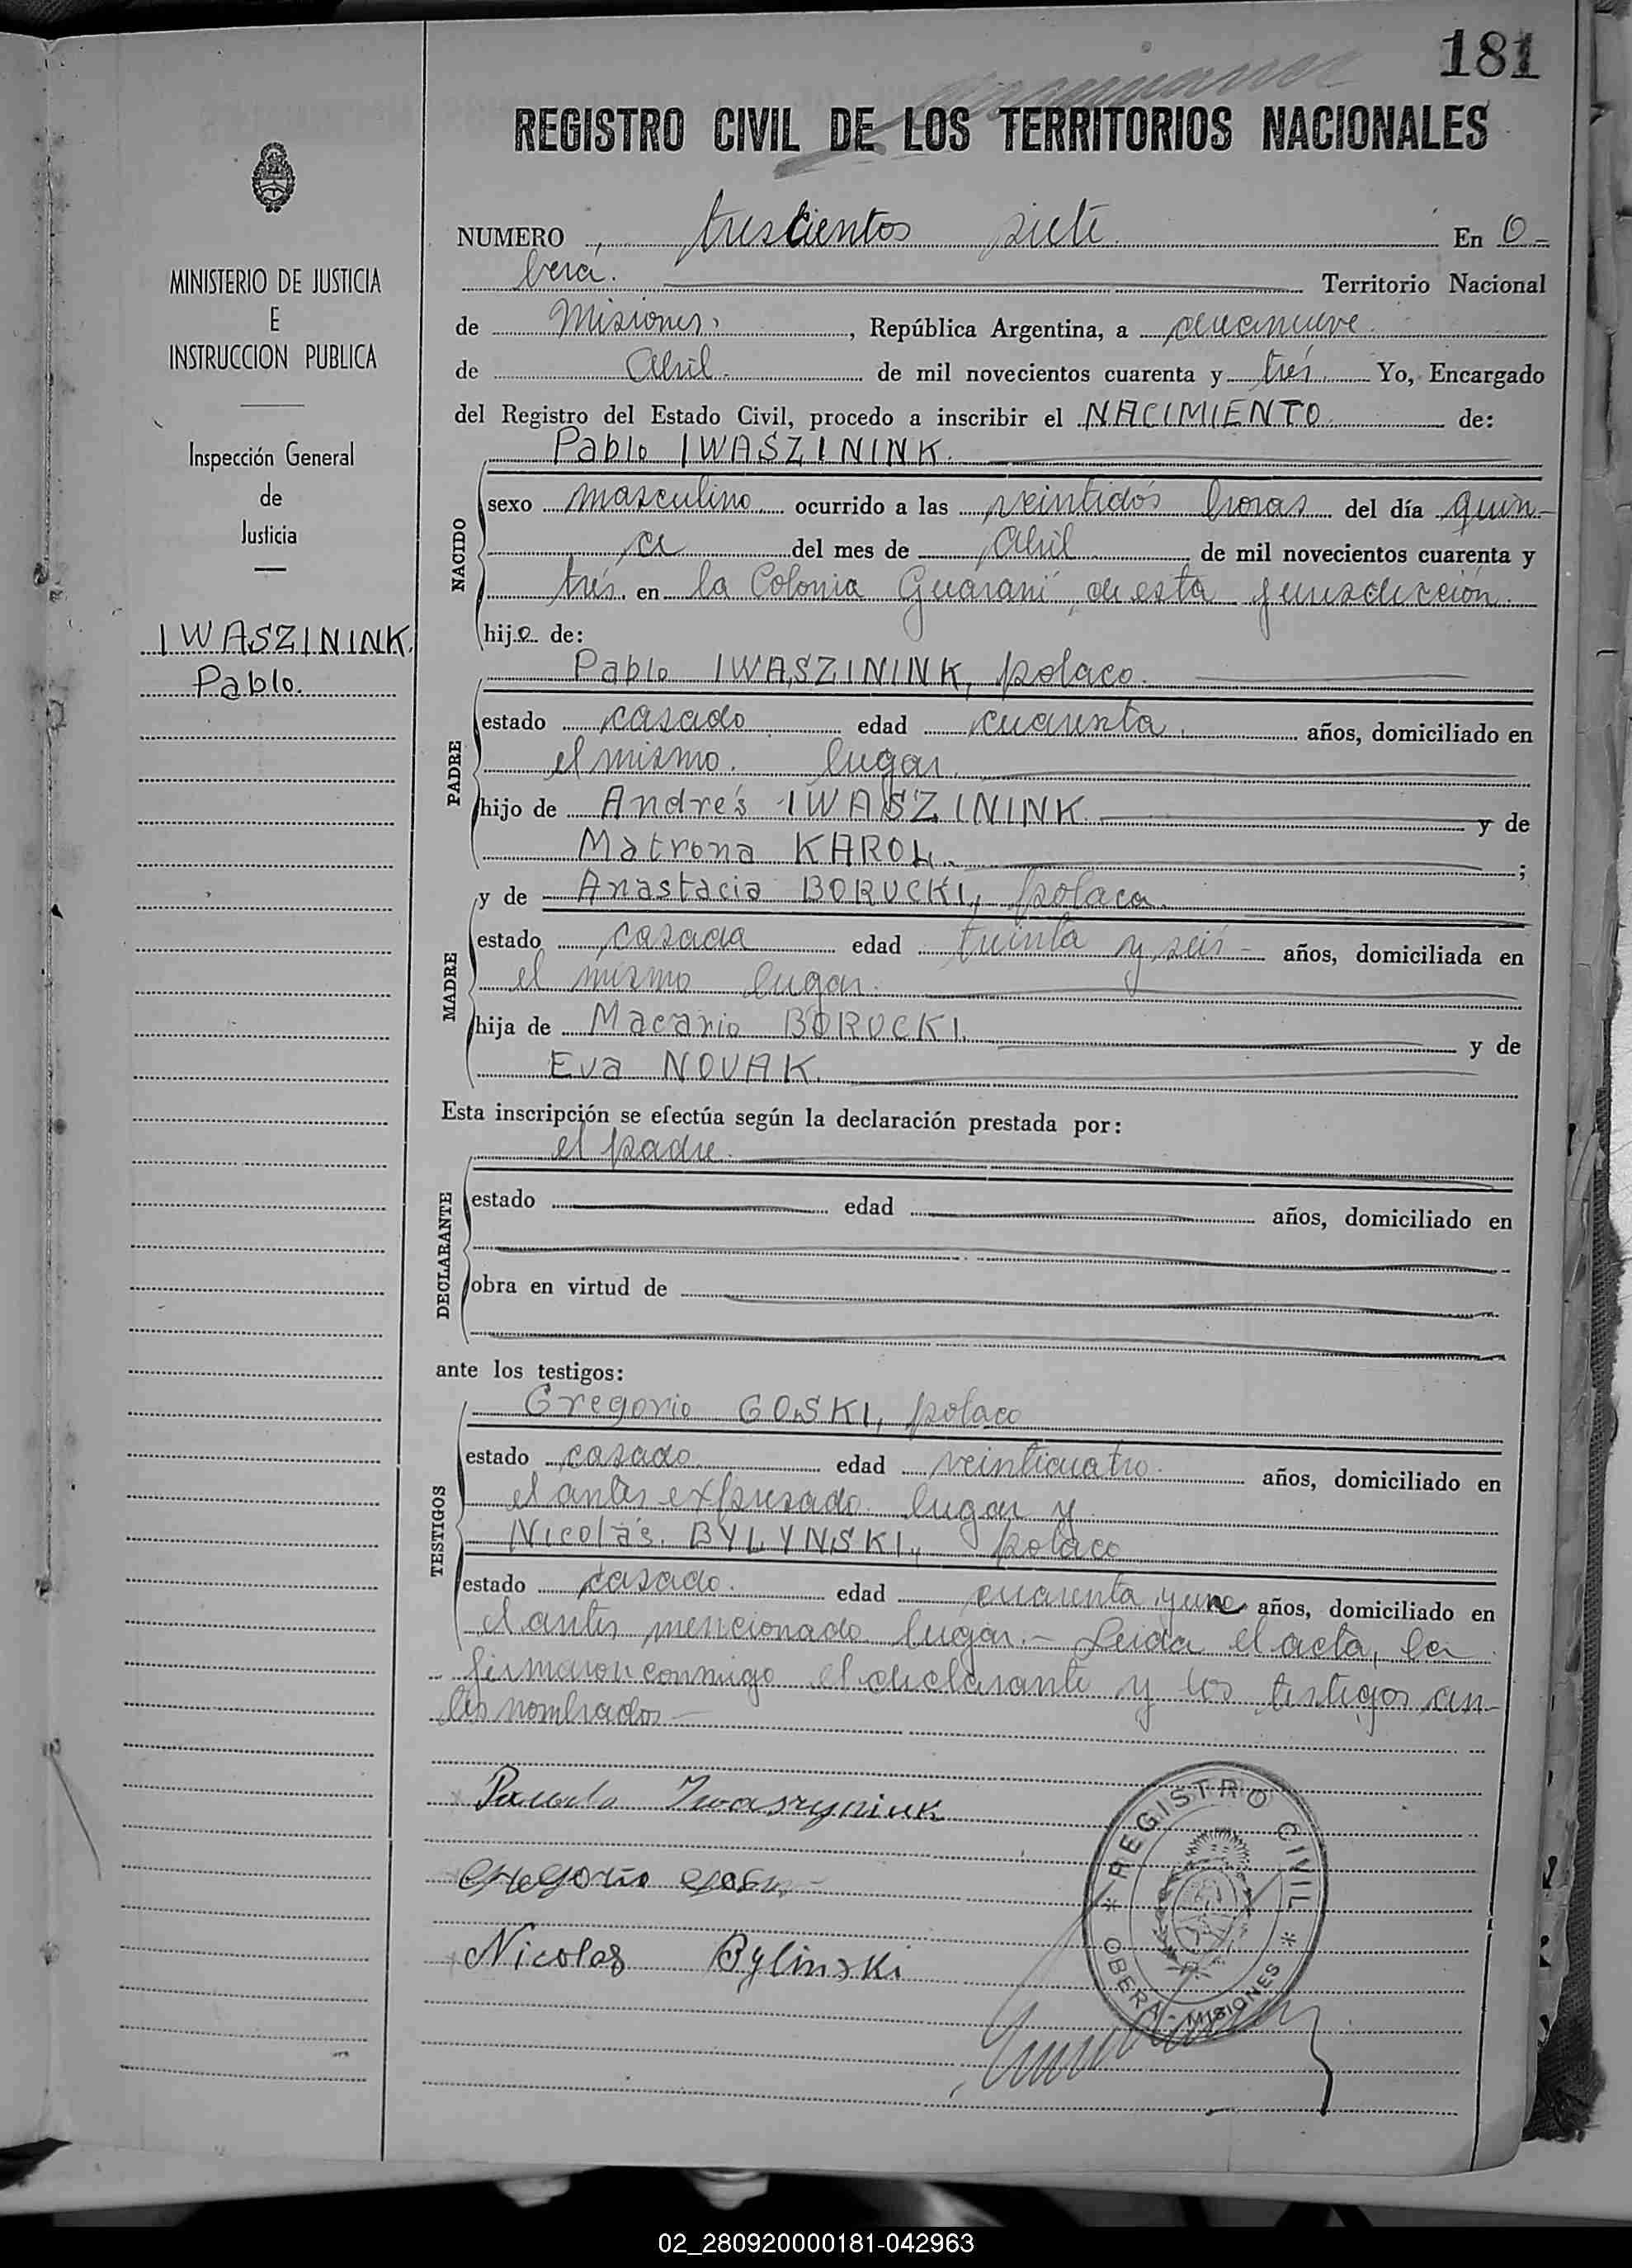 181
REGISTRO CIVIL DE LOS TERRITORIOS NACIONALES
MINISTERIO DE JUSTICIA
E
INSTRUCCION PUBLICA
Inspección General
de
Justicia
IWASZININK.
Pablo.
NUMERO trescientos siete. En O-
berá. Territorio Nacional
de Misiones, República Argentina, a diecinueve
de Abril de mil novecientos cuarenta y trés Yo, Encargado
del Registro del Estado Civil, procedo a inscribir el NACIMIENTO de:
Pablo IWASZININK.
NACIDO
sexo masculino ocurrido a las veintidós horas del día quin-
ce del mes de Abril de mil novecientos cuarenta y
trés. en la Colonia Guaraní, de esta jurisdicción.
hijo de:
Pablo IWASZININK, polaco.
PADRE
estado casado edad cuarenta años, domiciliado en
el mismo lugar.
hijo de Andrés IWASZININK y de
Matrona KAROL. ;
y de Anastacia BORUCKI, polaca.
MADRE
estado casada edad treinta y seis años, domiciliada en
el mismo lugar.
hija de Macario BORUCKI. y de
Eva NOVAK.
Esta inscripción se efectúa según la declaración prestada por:
el padre.
DECLARANTE
estado edad años, domiciliado en
obra en virtud de
ante los testigos:
Gregorio GOSKI, polaco
TESTIGOS
estado casado edad veinticuatro años, domiciliado en
el antes expresado lugar y
Nicolás BYLYNSKI, polaco
estado casado. edad cuarenta y uno años, domiciliado en
el antes mencionado lugar.- Leida el acta, la
firmaron conmigo el declarante y los testigos an-
tes nombrados-
Iwaszyniuk
Gregorio
Nicolas Bylinski
REGISTRO CIVIL
OBERÁ - MISIONES
02_280920000181-042963